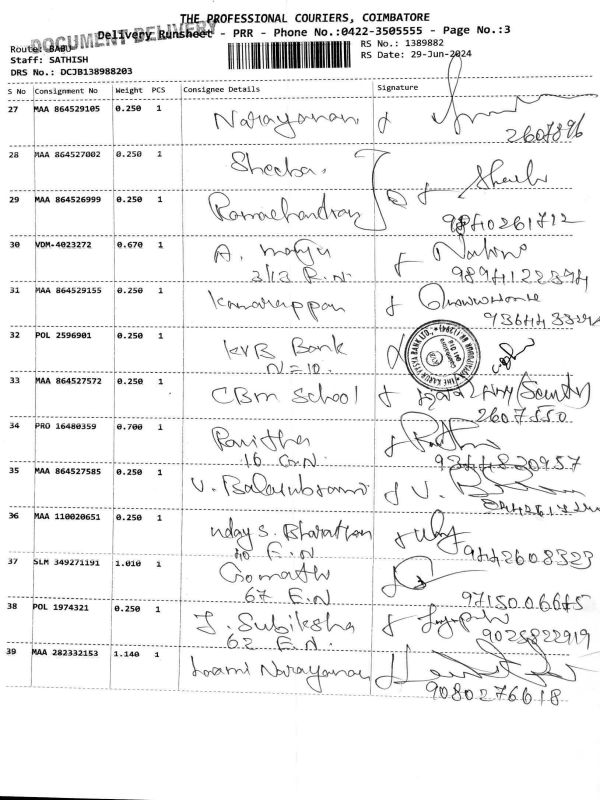 THE PROFESSIONAL COURIERS, COIMBATORE
DOCUMENT DELIVERY
Delivery Runsheet - PRR - Phone No.:0422-3505555 - Page No.:3
Route: BABU
RS No.: 1389882
Staff: SATHISH
RS Date: 29-Jun-2024
DRS No.: DCJB138988203
S No Consignment No Weight PCS Consignee Details Signature
27 MAA 864529105 0.250 1 Narayanan
2607896
28 MAA 864527002 0.250 1 Sheeba.
29 MAA 864526999 0.250 1 Ramachandran
9840261712
30 VDM-4023272 0.670 1 A.
3/13 R.N. 9894122394
31 MAA 864529155 0.250 1
32 POL 2596901 0.250 1 KVB Bank
THE KARUR VYSYA BANK LTD.,
33 MAA 864527572 0.250 1 CBM School
2607550
34 PRO 16480359 0.700 1 Pavithra
16 G.N. 9344820957
35 MAA 864527585 0.250 1
36 MAA 110020651 0.250 1 Uday S. Bharathan
40 F.N 9442608323
37 SLM 349271191 1.010 1 Gomathi
67 F.N 9715006645
38 POL 1974321 0.250 1 J. Subiksha
62 F.N. 9025822919
39 MAA 282332153 1.140 1 Laxmi Narayanan
9080276618